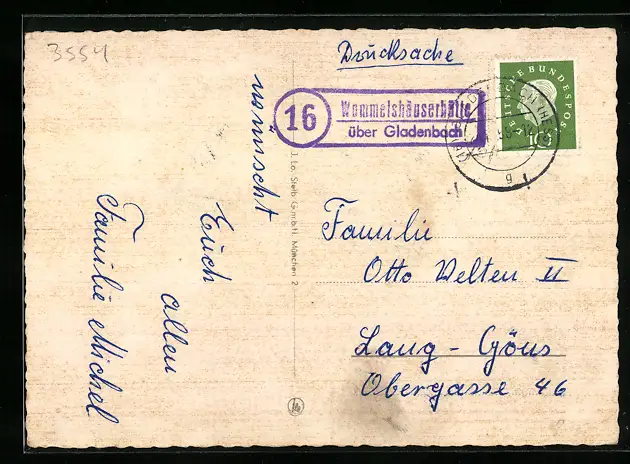 3554
Drucksache
16
Wommelshäuserhütte
über Gladenbach
DEUTSCHE BUNDESPOST
10
wünscht
Euch
allen
Familie Michel
GmbH. München 2
Familie
Otto Velten II
Lang-Göns
Obergasse 46